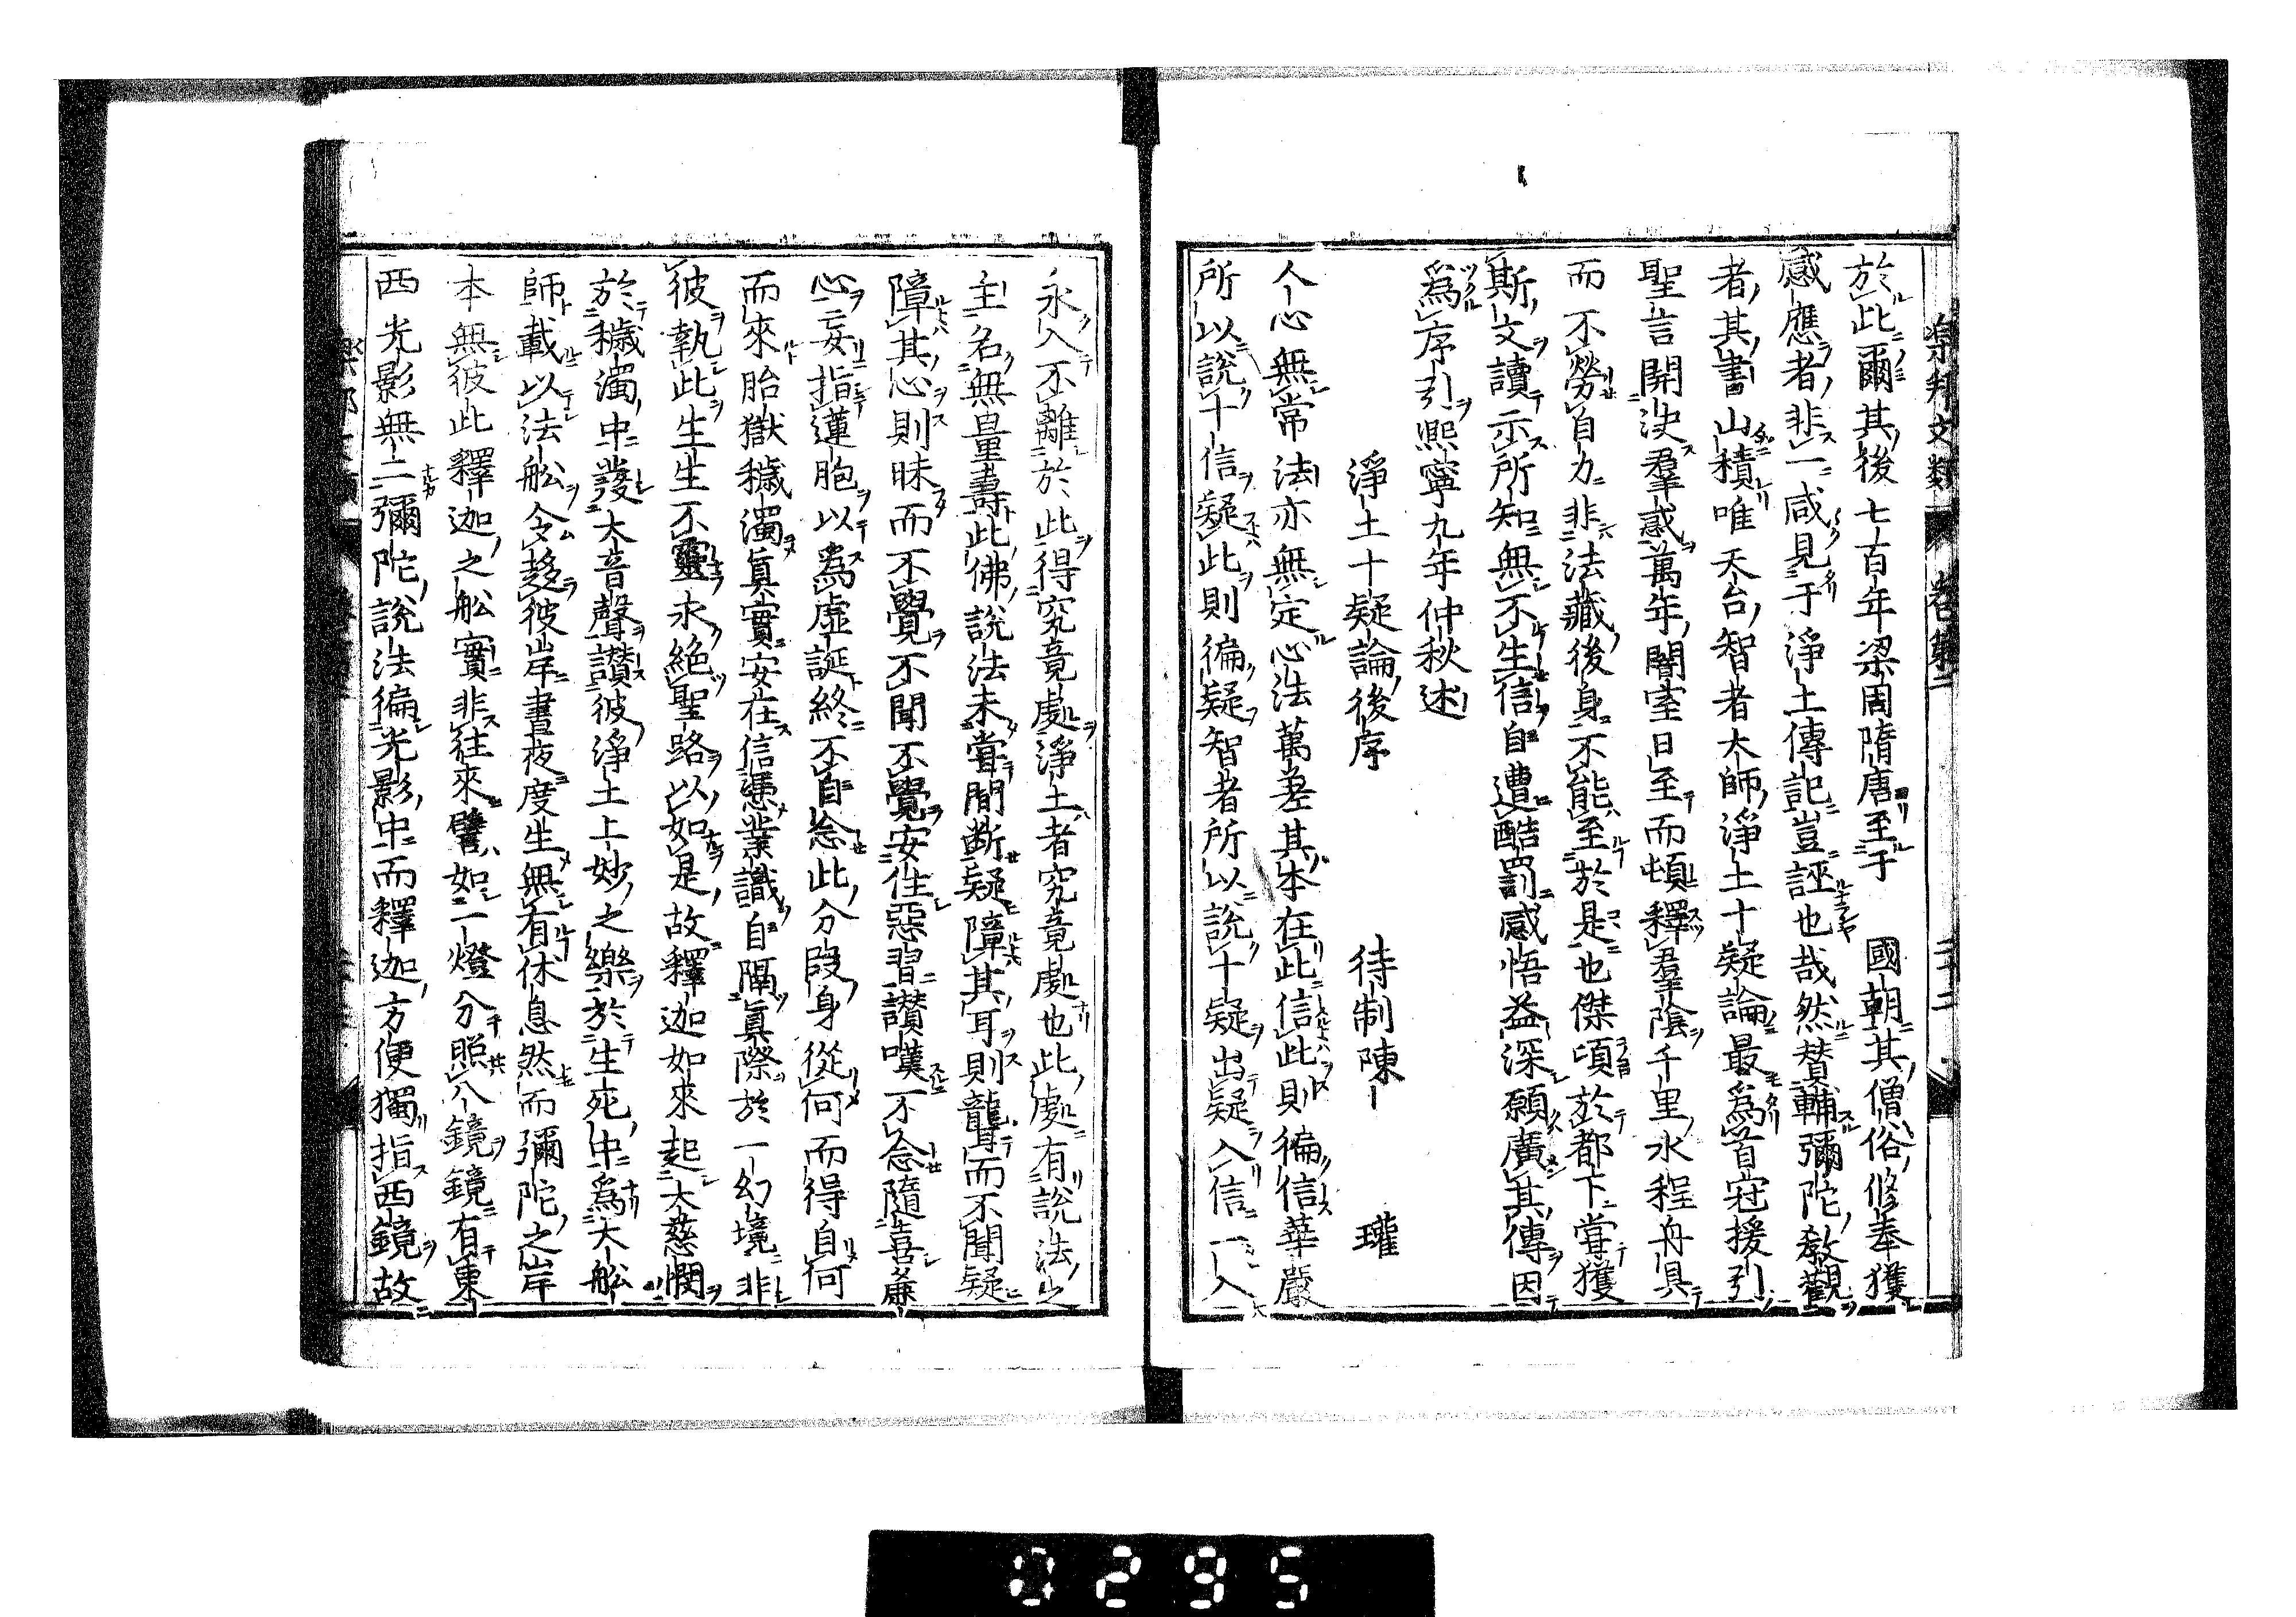 樂邦文類 卷第二 二十二
於此爾其後七百年梁周隋唐至于 國朝其僧俗修奉獲
感應者非一咸見于淨土傳記豈誣也哉然賛輔彌陀教觀
者其書山積唯天台智者大師淨土十疑論最爲首冠援引
聖言開決羣惑萬年闇室日至而頓釋羣陰千里水程舟具
而不勞自力非法藏後身不能至於是也傑頃於都下甞獲
斯文讀示所知無不生信自遭酷罰感悟益深願廣其傳因
爲序引熙寧九年仲秋述
淨土十疑論後序 待制陳 瓘
人心無常法亦無定心法萬差其本在此信此則徧信華嚴
所以說十信疑此則徧疑智者所以說十疑出疑入信一入
永入不離於此得究竟處淨土者究竟處也此處有說法之
主名無量壽此佛說法未甞間斷疑障其耳則聾而不聞疑
障其心則昧而不覺不聞不覺安住惡習讚嘆不念隨喜麤
心妄指蓮胞以爲虛誕終不自念此分段身從何而得自何
而來胎獄穢濁真實安在信憑業識自隔真際於一幻境非
彼執此生生不靈永絕聖路以如是故釋迦如來起大慈憫
於穢濁中發大音聲讚彼淨土上妙之樂於生死中爲大舩
師載以法舩令趍彼岸晝夜度生無有休息然而彌陀之岸
本無彼此釋迦之舩實非往來譬如一燈分照八鏡鏡有東
西光影無二彌陀說法徧光影中而釋迦方便獨指西鏡故
0295